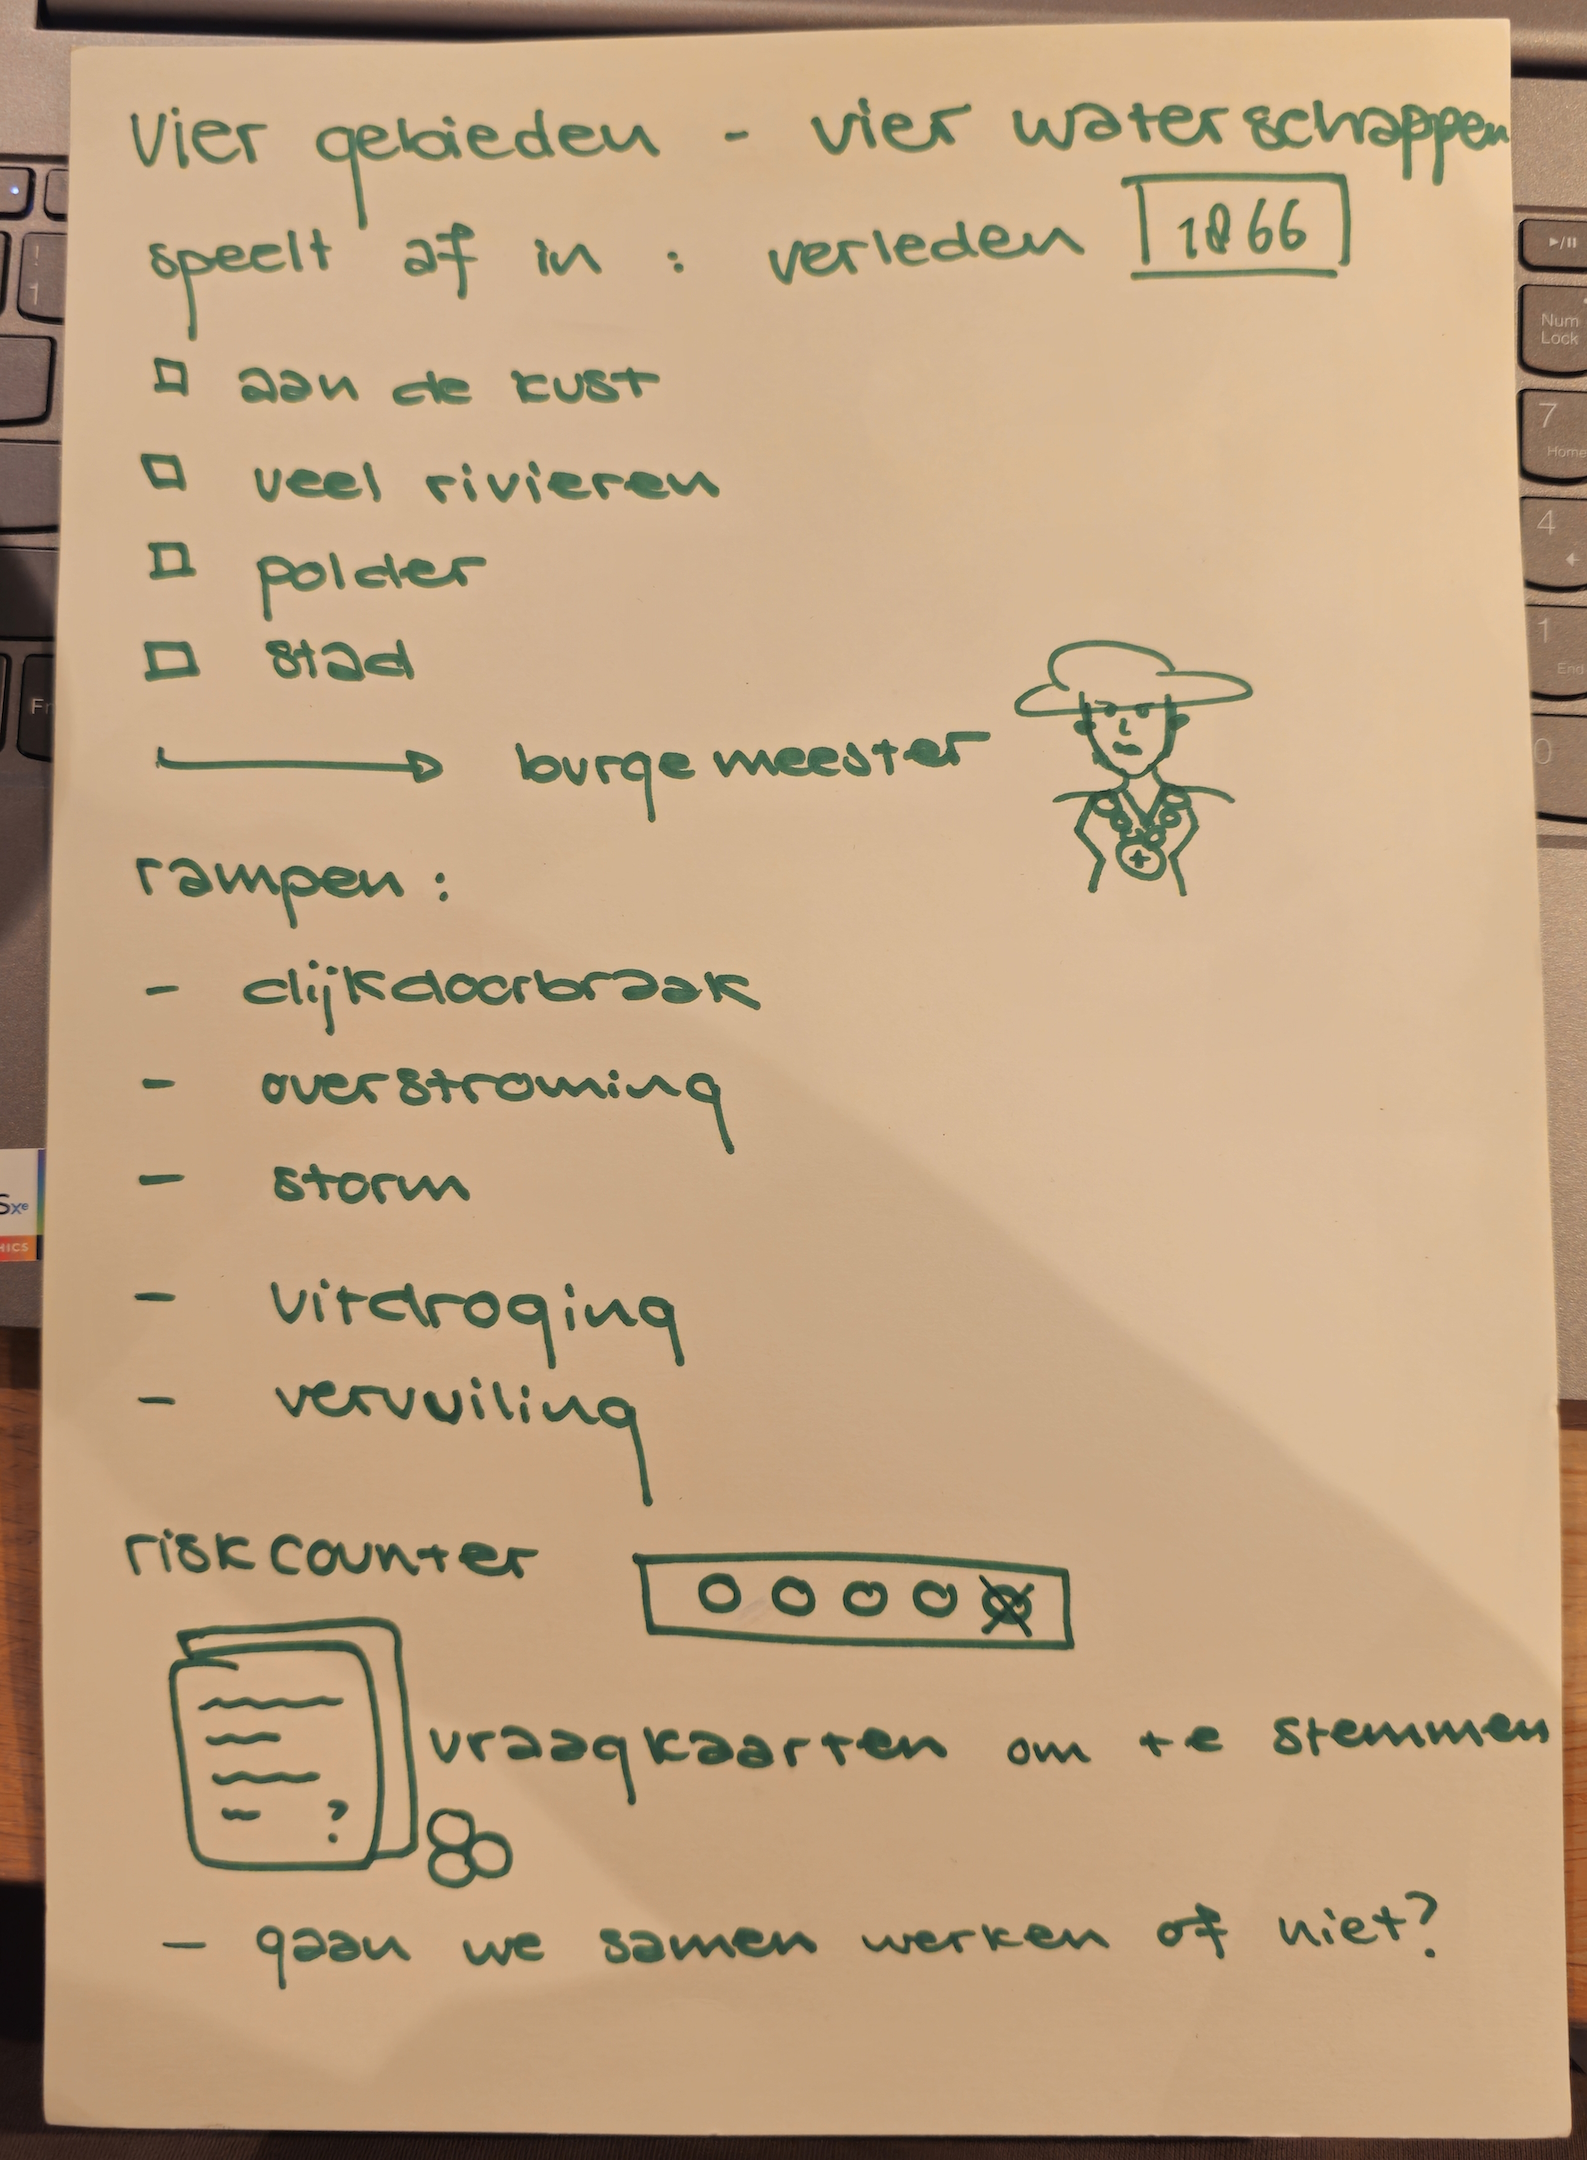 vier gebieden - vier waterschappen
speelt af in : verleden 1866
aan de kust
veel rivieren
polder
stad
burgemeester
rampen :
- dijkdoorbraak
- overstroming
- storm
- uitdroging
- vervuiling
risk counter
vraagkaarten om te stemmen
?
- gaan we samen werken of niet?
Num
Lock
7
Home
4
1
End
0
!
1
Fn